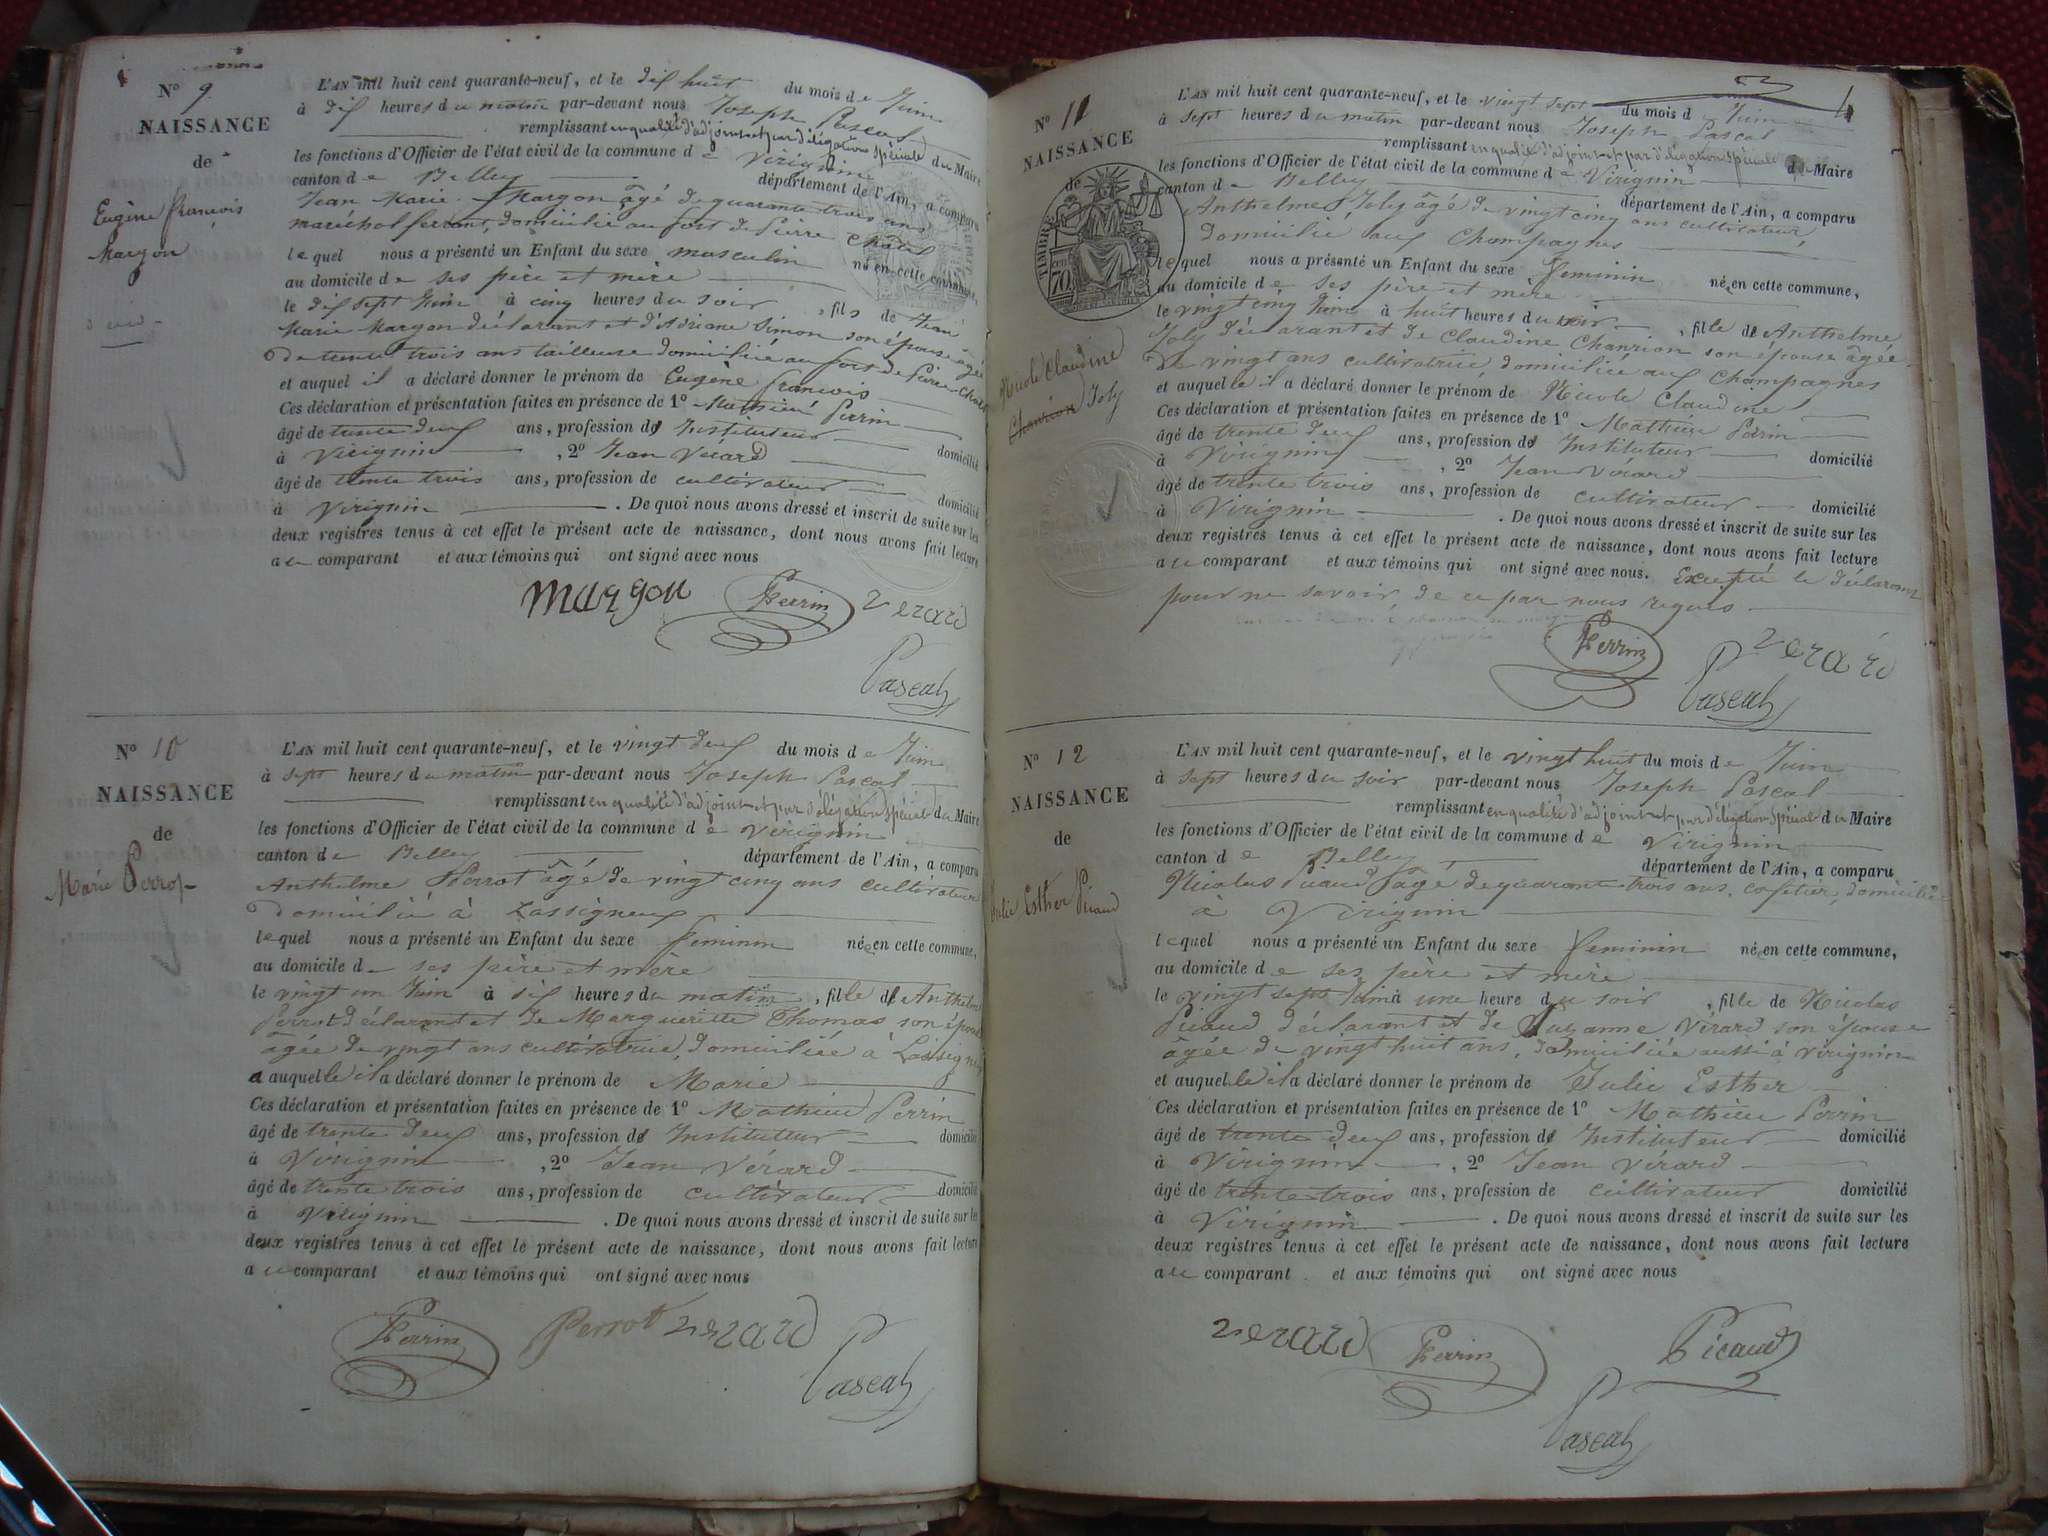 N° 9.
NAISSANCE
de
Eugène François
Margon
L'AN mil huit cent quarante-neuf, et le dix huit du mois de Juin
à dix heures du matin par-devant nous Joseph Pascal
remplissant en qualité d'adjoint et par délégation spéciale du Maire
les fonctions d'Officier de l'état civil de la commune de Virignin
canton de Belley département de l'Ain, a comparu
Jean Marie Margon âgé de quarante trois ans
maréchal ferrant, domicilié au fort de Pierre Châtel
lequel nous a présenté un Enfant du sexe masculin né en cette commune,
au domicile de ses père et mère
le dix sept Juin à cinq heures du soir, fils de Jean
Marie Margon déclarant et d'Adriane Simon son épouse âgée
de trente trois ans tailleuse domiciliée au fort de Pierre-Châtel
et auquel il a déclaré donner le prénom de Eugène François
Ces déclaration et présentation faites en présence de 1° Mathieu Perrin
âgé de trente deux ans, profession d' Instituteur domicilié
à Virignin, 2° Jean Vérard
âgé de trente trois ans, profession de cultivateur domicilié
à Virignin. De quoi nous avons dressé et inscrit de suite sur les
deux registres tenus à cet effet le présent acte de naissance, dont nous avons fait lecture
au comparant et aux témoins qui ont signé avec nous
Margon Perrin Verard
Pascal
N° 10
NAISSANCE
de
Marie Perrot
L'AN mil huit cent quarante-neuf, et le vingt deux du mois de Juin
à sept heures du matin par-devant nous Joseph Pascal
remplissant en qualité d'adjoint et par délégation spéciale du Maire
les fonctions d'Officier de l'état civil de la commune de Virignin
canton de Belley département de l'Ain, a comparu
Anthelme Perrot âgé de vingt cinq ans cultivateur
domicilié à Lassigneux
lequel nous a présenté un Enfant du sexe feminin née en cette commune,
au domicile de ses père et mère
le vingt un Juin à six heures du matin, fille d' Anthelme
Perrot déclarant et de Margueritte Thomas son épouse
âgée de vingt ans cultivatrice, domiciliée à Lassigneux
a auquelle il a déclaré donner le prénom de Marie
Ces déclaration et présentation faites en présence de 1° Mathieu Perrin
âgé de trente deux ans, profession d' Instituteur domicilié
à Virignin, 2° Jean Vérard
âgé de trente trois ans, profession de cultivateur domicilié
à Virignin. De quoi nous avons dressé et inscrit de suite sur les
deux registres tenus à cet effet le présent acte de naissance, dont nous avons fait lecture
au comparant et aux témoins qui ont signé avec nous
Perrin Perrot Verard
Pascal
N° 11
NAISSANCE
de
TIMBRE
70
Nicole Claudine
Chanrion Joly
L'AN mil huit cent quarante-neuf, et le vingt sept du mois d Juin
à sept heures du matin par-devant nous Joseph Pascal
remplissant en qualité d'adjoint et par délégation spéciale du Maire
les fonctions d'Officier de l'état civil de la commune de Virignin
canton de Belley département de l'Ain, a comparu
Anthelme Joly âgé de vingt cinq ans cultivateur,
domicilié aux Champagnes
lequel nous a présenté un Enfant du sexe feminin née en cette commune,
au domicile de ses père et mère
le vingt cinq Juin à huit heures du soir, fille d' Anthelme
Joly déclarant et de Claudine Chanrion son épouse âgée
de vingt ans cultivatrice, domiciliée aux Champagnes
et auquelle il a déclaré donner le prénom de Nicole Claudine
Ces déclaration et présentation faites en présence de 1° Mathieu Perrin
âgé de trente deux ans, profession d' Instituteur domicilié
à Virignin, 2° Jean Verard
âgé de trente trois ans, profession de cultivateur domicilié
à Virignin. De quoi nous avons dressé et inscrit de suite sur les
deux registres tenus à cet effet le présent acte de naissance, dont nous avons fait lecture
au comparant et aux témoins qui ont signé avec nous. Excepté le déclarant
pour ne savoir, de ce par nous requis
Perrin Verard
Pascal
N° 12
NAISSANCE
de
Julie Esther Picaud
L'AN mil huit cent quarante-neuf, et le vingt huit du mois de Juin
à sept heures du soir par-devant nous Joseph Pascal
remplissant en qualité d'adjoint et par délégation spéciale du Maire
les fonctions d'Officier de l'état civil de la commune de Virignin
canton de Belley département de l'Ain, a comparu
Nicolas Picaud âgé de quarante trois ans, cafetier, domicilié
à Virignin
lequel nous a présenté un Enfant du sexe feminin née en cette commune,
au domicile de ses père et mère
le vingt sept Juin à une heure du soir, fille de Nicolas
Picaud déclarant et de Suzanne Vérard son épouse
âgée de vingt huit ans, domiciliée aussi à Virignin
et auquelle il a déclaré donner le prénom de Julie Esther
Ces déclaration et présentation faites en présence de 1° Mathieu Perrin
âgé de trente deux ans, profession d' Instituteur domicilié
à Virignin, 2° Jean Vérard
âgé de trente trois ans, profession de cultivateur domicilié
à Virignin. De quoi nous avons dressé et inscrit de suite sur les
deux registres tenus à cet effet le présent acte de naissance, dont nous avons fait lecture
au comparant et aux témoins qui ont signé avec nous
Verard Perrin Picaud
Pascal